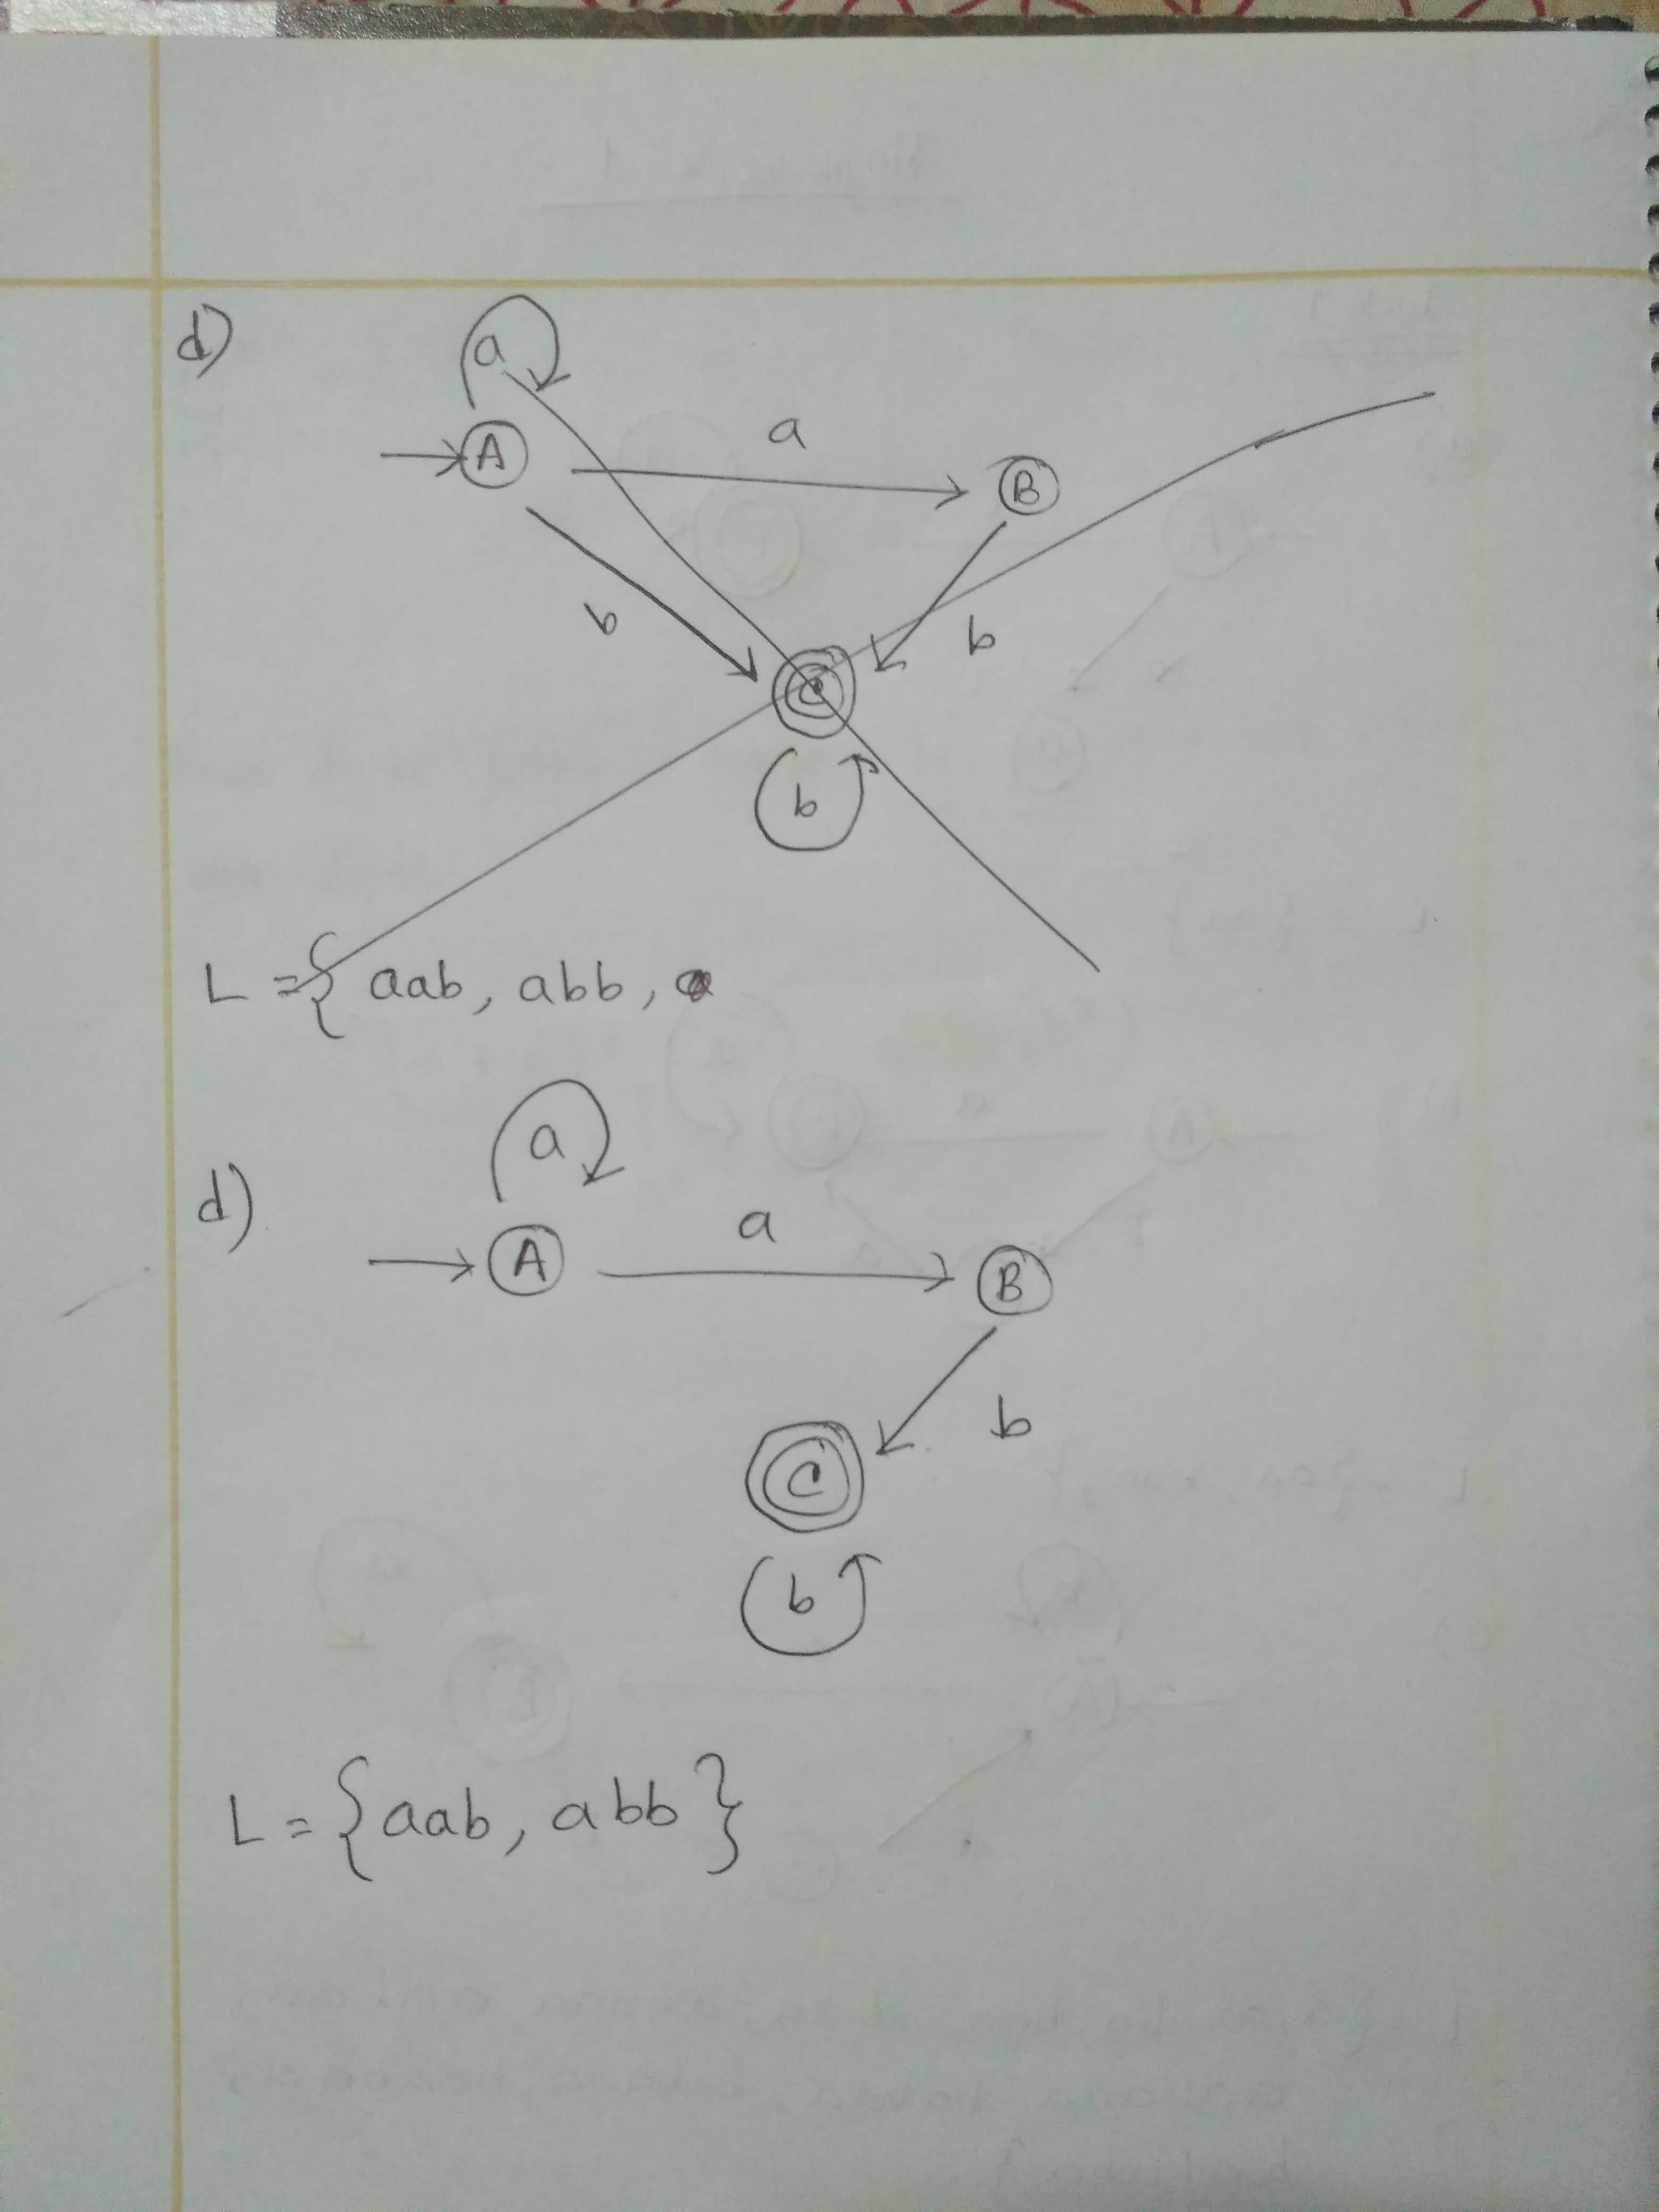 d)
a
A
a
B
b
b
C
b
L = { aab, abb,
d)
a
A
a
B
b
C
b
L = { aab, abb }